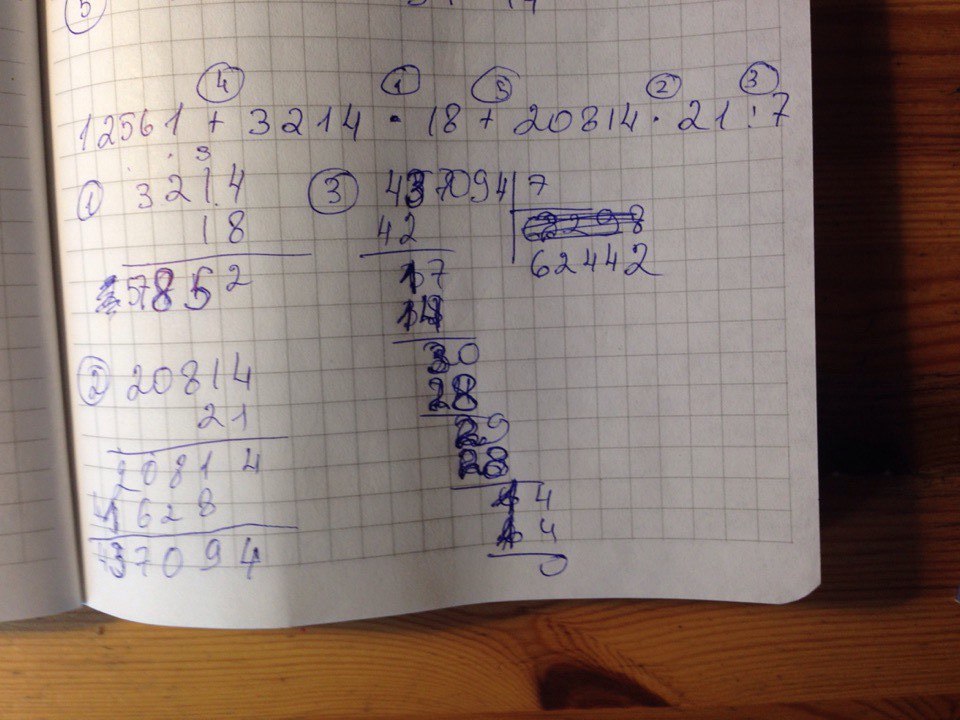 5
4 1 5 2 3
12561 + 3214 · 18 + 20814 · 21 : 7
3
1 3214
18
57852
2 20814
21
20814
41628
437094
3 437094 | 7
42
62442
17
14
30
28
29
28
14
14
0